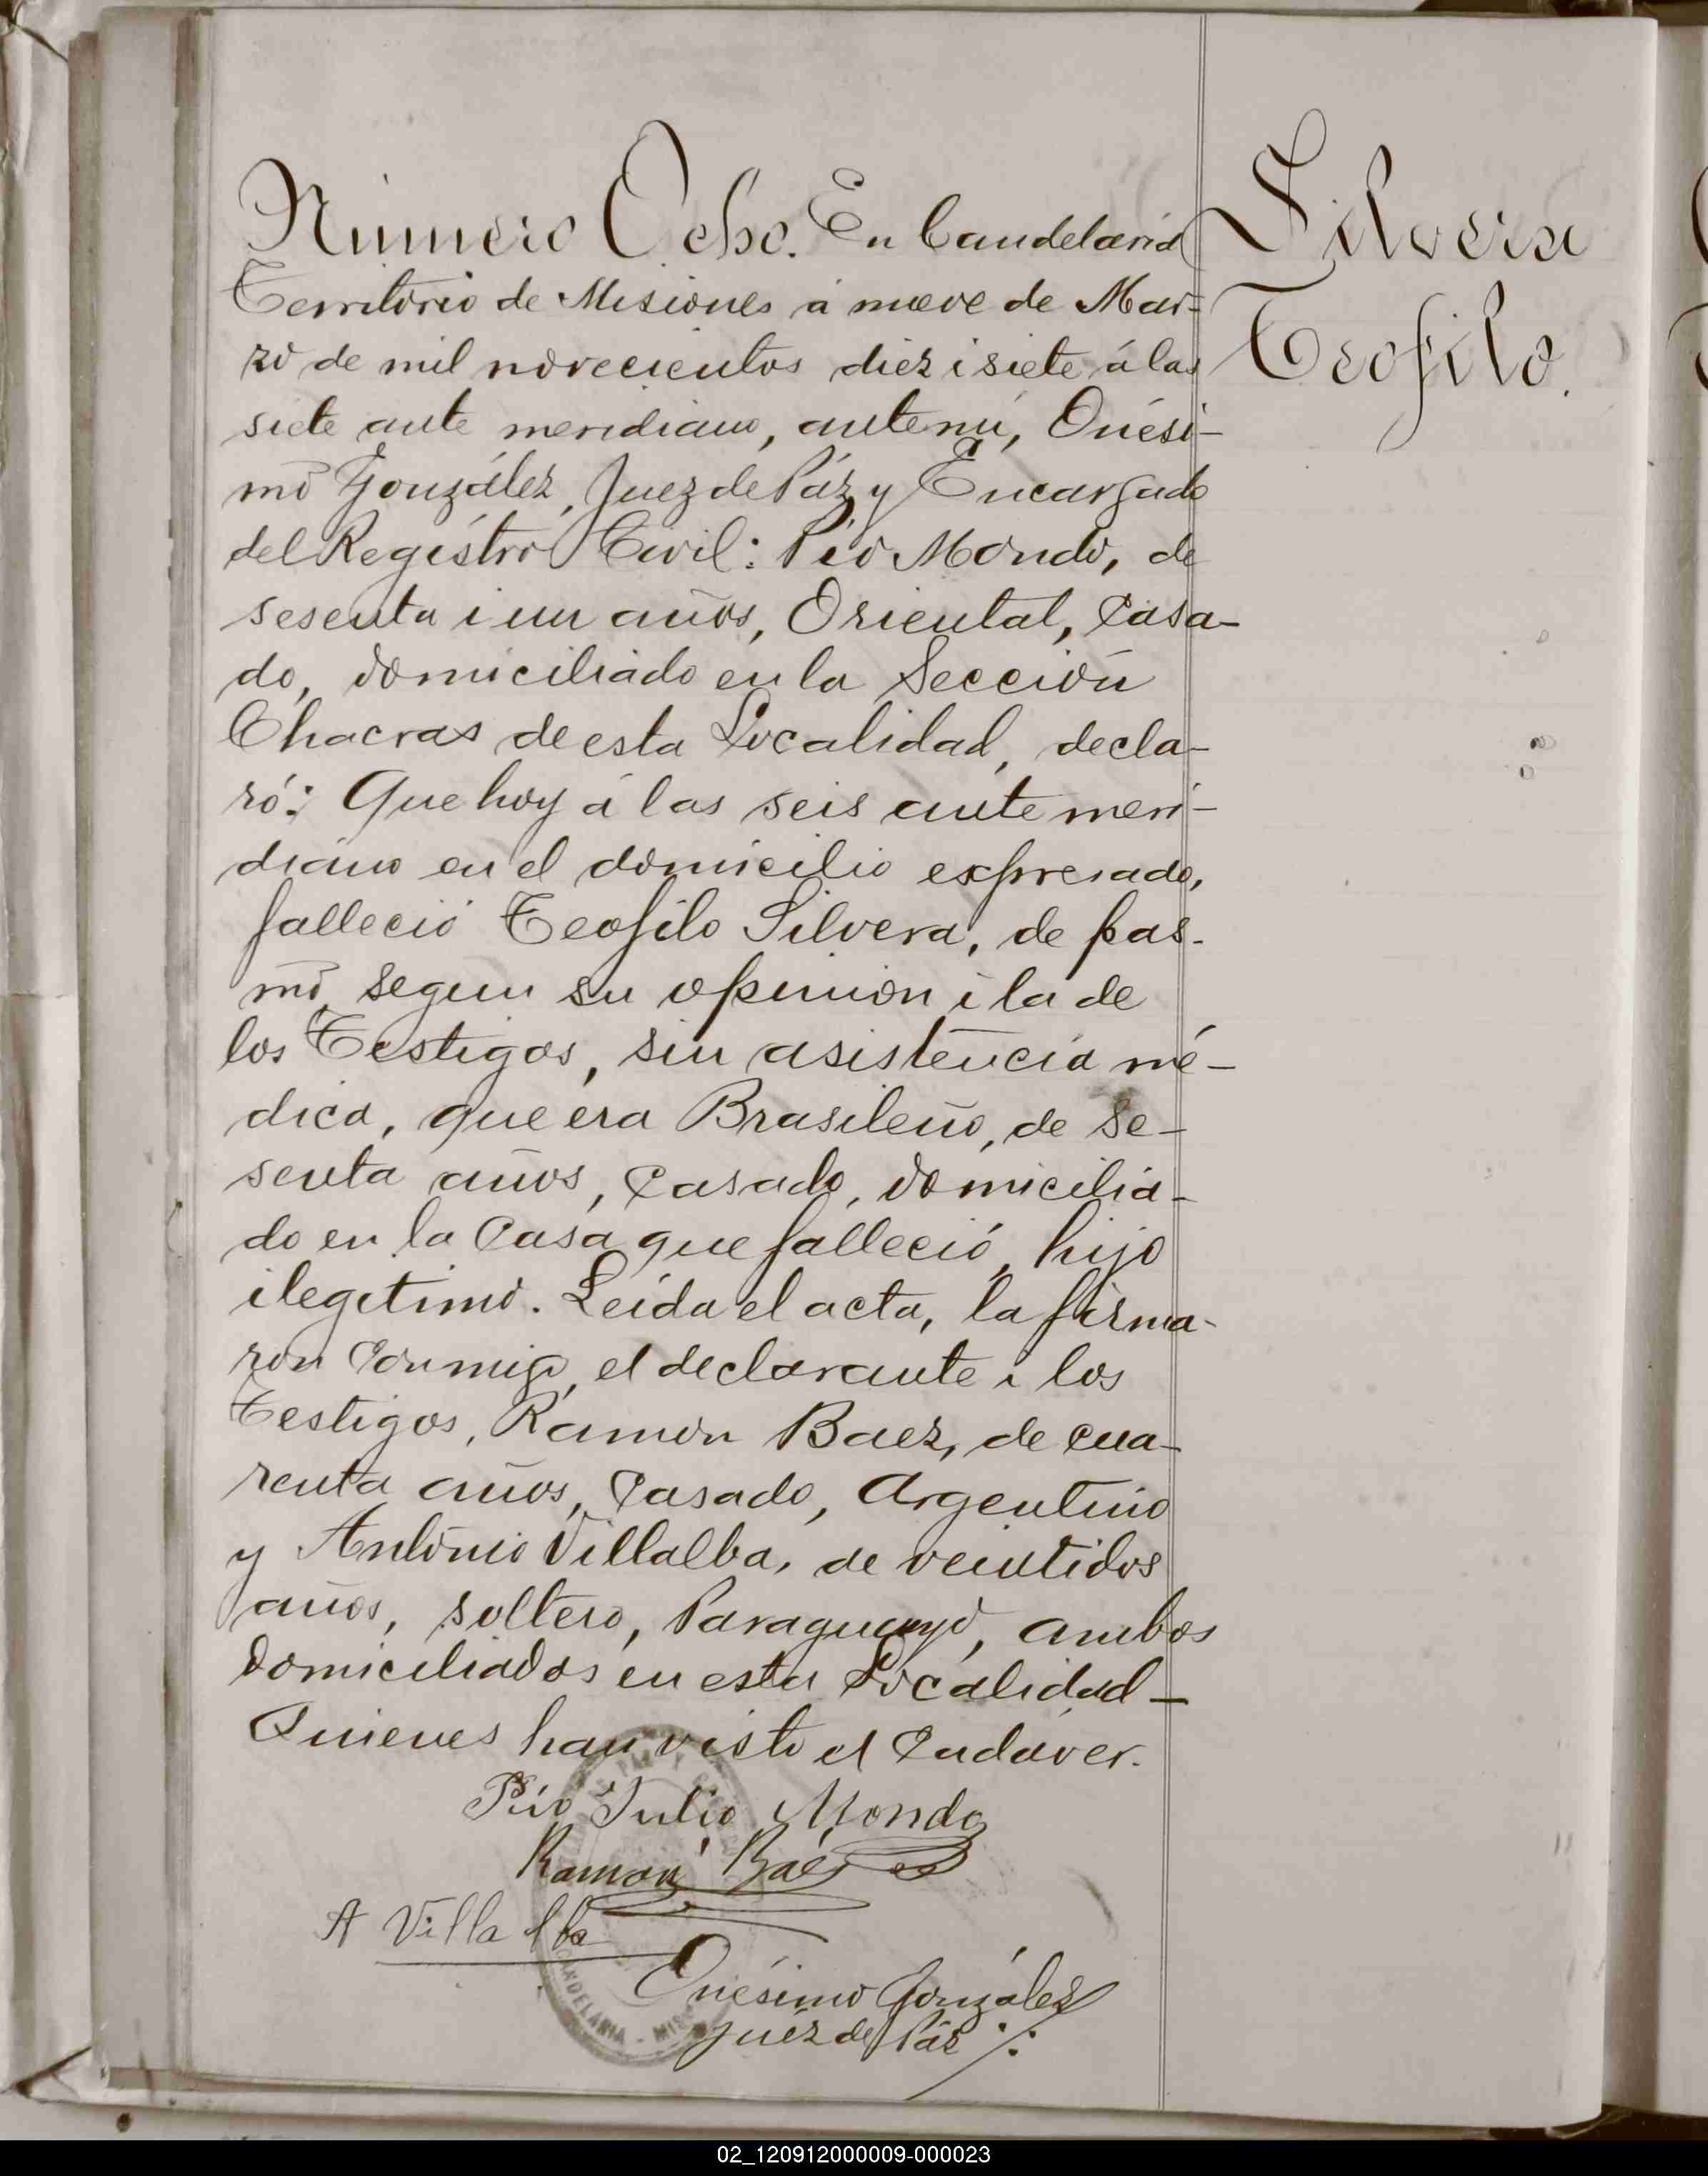 Número Ocho. En Candelaria
Territorio de Misiones á nueve de Mar-
zo de mil novecientos diez i siete á las
siete ante meridiano, ante mí, Onési-
mo González, Juez de Páz y Encargado
del Registro Civil: Pío Mondo, de
sesenta i un años, Oriental, Casa-
do, domiciliado en la Sección
Chacras de esta Localidad, decla-
ró: Que hoy á las seis ante meri-
diano en el domicilio expresado,
falleció Teofilo Silvera, de pas-
mo, segun su opinión i la de
los Testigos, sin asistencia mé-
dica, que era Brasileño, de se-
senta años, Casado, domicilia-
do en la Casa que falleció, hijo
ilegitimo. Leída el acta, la firma-
ron conmigo, el declarante i los
Testigos, Ramón Baez, de cua-
renta años, Casado, Argentino
y Antonio Villalba, de veintidos
años, soltero, Paraguayo, ambos
domiciliados en esta Localidad_
Quienes han visto el Cadáver.
Pío Julio Mondo
Ramón Báez
A Villalba
Onésimo González
Juez de Páz
Silvera
Teofilo.
CANDELARIA - MIS
02_120912000009-000023